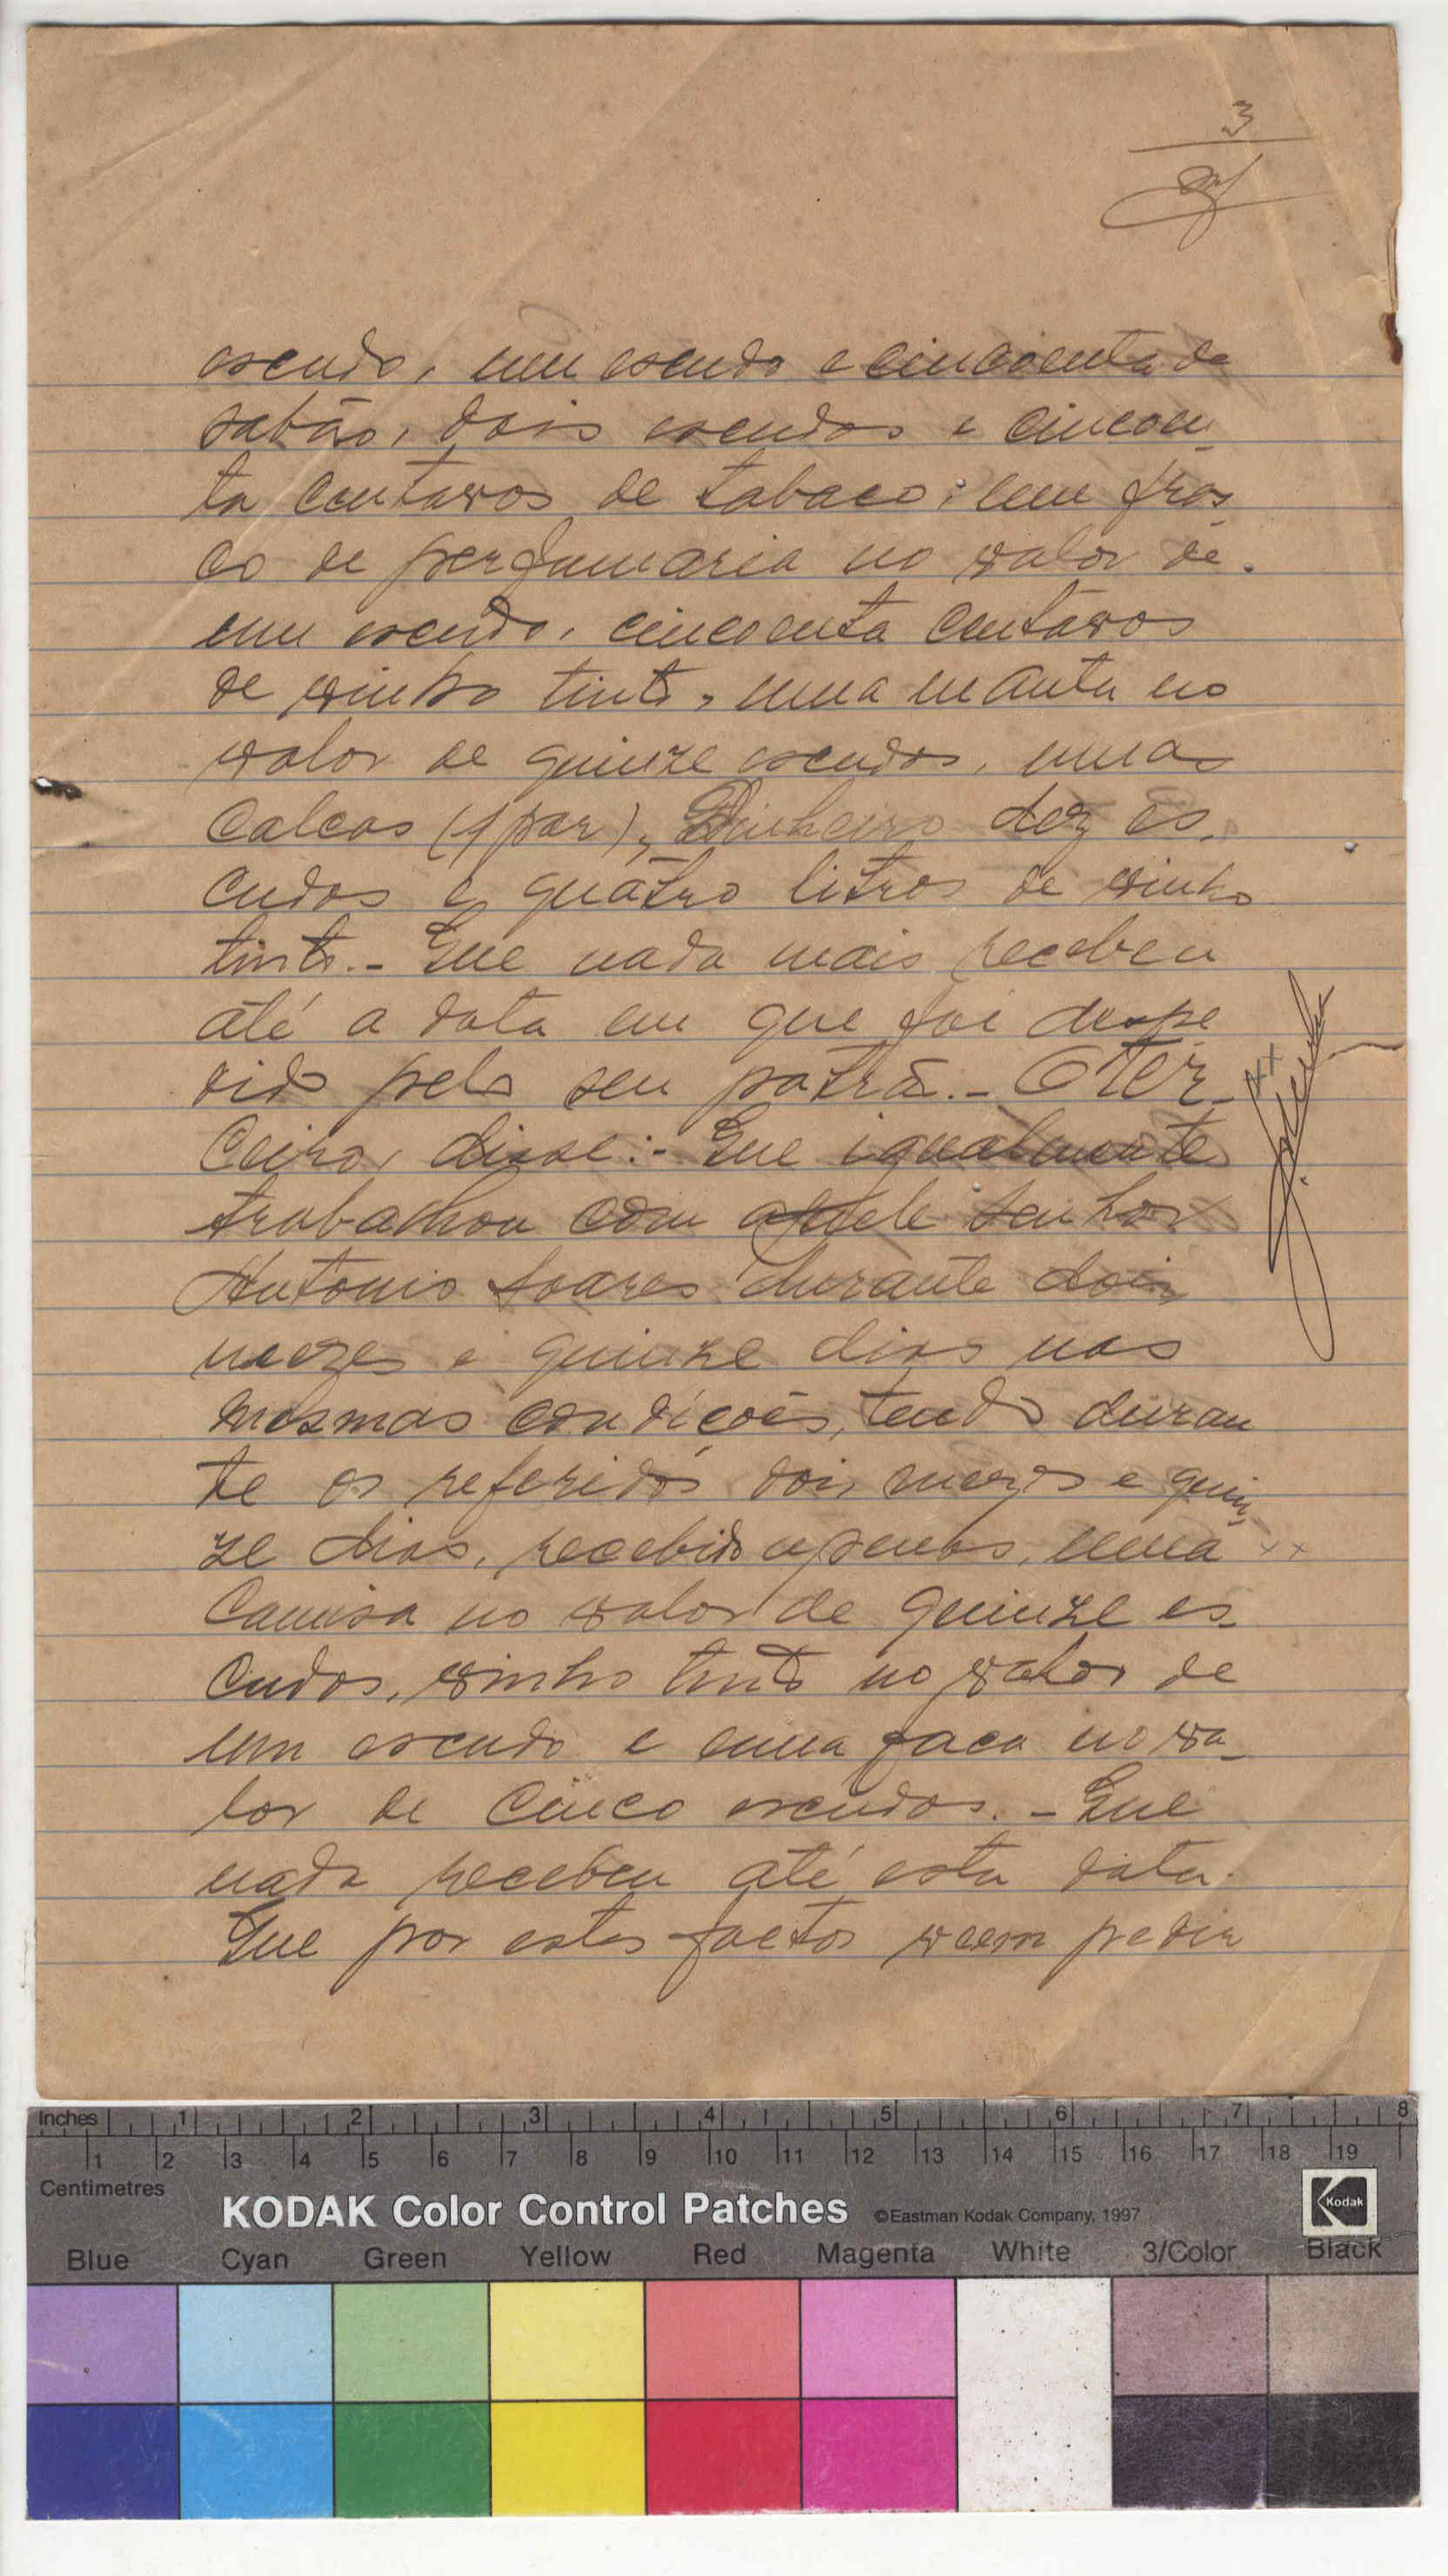 3
escudo, um escudo e cincoenta de
sabão, dois escudos e cincoen
ta centavos de tabaco; um fras
co de perfumaria no valor de
um escudo, cincoenta centavos
de vinho tinto, uma manta no
valor de quinze escudos, umas
calcas (1 par), Dinheiro dez es-
cudos e quatro litros de vinho
tinto.- Que nada mais recebeu
até a data em que foi despe
dido pelo seu patrão.- O Ter-
ceiro, disse:- Que igualmente
trabalhou com aquele senhor
Antonio Soares durante dois
mezes e quinze dias nas
mesmas condições, tendo duran
te os referidos dois mezes e quin-
ze dias, recebido apenas, uma
Camisa no valor de quinze es-
cudos, vinho tinto no valor de
um escudo e uma faca no va-
lor de cinco escudos.- Que
nada recebeu até esta data.
Que por estes factos veem pedir
Inches 1 2 3 4 5 6 7 8
1 2 3 4 5 6 7 8 9 10 11 12 13 14 15 16 17 18 19
Centimetres
KODAK Color Control Patches ©Eastman Kodak Company, 1997 Kodak
Blue Cyan Green Yellow Red Magenta White 3/Color Black